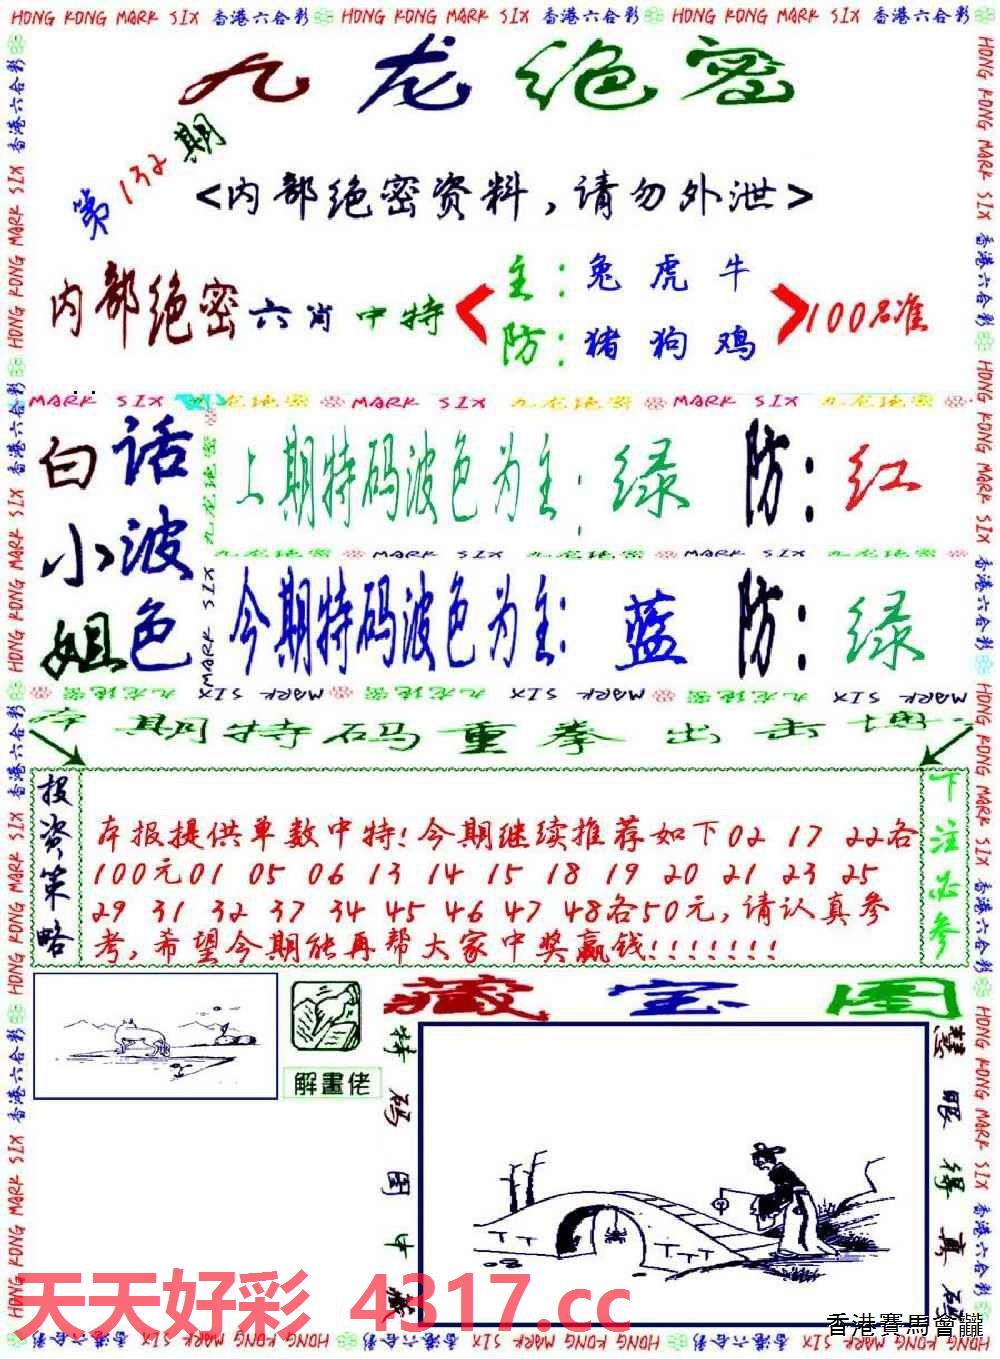 HONG KONG MARK SIX 香港六合彩 HONG KONG MARK SIX 香港六合彩 HONG KONG MARK SIX 香港六合彩
九龙绝密
第132期
<内部绝密资料，请勿外泄>
内部绝密六肖中特
主：兔 虎 牛
防：猪 狗 鸡
100名准
MARK SIX 九龙绝密 MARK SIX 九龙绝密 MARK SIX 九龙绝密
白小姐
话波色
上期特码波色为主：绿 防：红
九龙绝密 MARK SIX 九龙绝密 MARK SIX 九龙绝密
今期特码波色为主：蓝 防：绿
本期特码重拳出击
投资策略
本报提供单数中特！今期继续推荐如下02 17 22各
100元01 05 06 13 14 15 18 19 20 21 23 25
29 31 32 37 34 45 46 47 48各50元，请认真参
考，希望今期能再帮大家中奖赢钱！！！！！！！
下注必参
藏宝图
解畫佬
特码图中藏
慧眼得真码
天天好彩 4317.cc
香港賽馬會